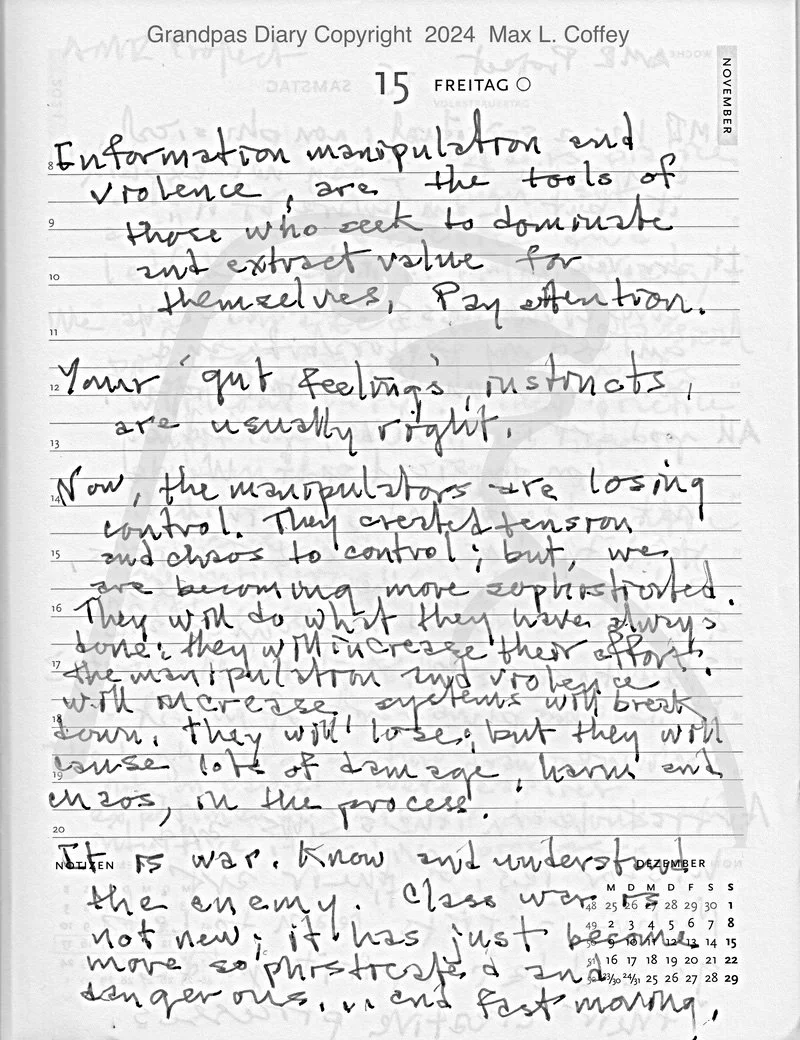 Grandpas Diary Copyright 2024 Max L. Coffey
15 FREITAG
NOVEMBER
Information manipulation and
8
violence, are the tools of
9
those who seek to dominate
and extract value for
10
themselves, Pay attention.
11
Your 'gut feelings', instincts,
12
are usually right.
13
Now, the manipulators are losing
14
control. They created tension
and chaos to control; but, we
15
are becoming more sophisticated.
They will do what they have always
16
done: they will increase their efforts.
the manipulation and violence
17
will increase systems will break
down. They will lose; but they will
18
cause lots of damage, harm and
19
chaos, in the process.
20
It is war. Know and understand
NOTIZEN
DEZEMBER
the enemy. Class war is
M D M D F S S
48 25 26 27 28 29 30 1
not new; it has just become
49 2 3 4 5 6 7 8
50 9 10 11 12 13 14 15
more sophisticated and
51 16 17 18 19 20 21 22
52 23/30 24/31 25 26 27 28 29
dangerous... and fast moving.